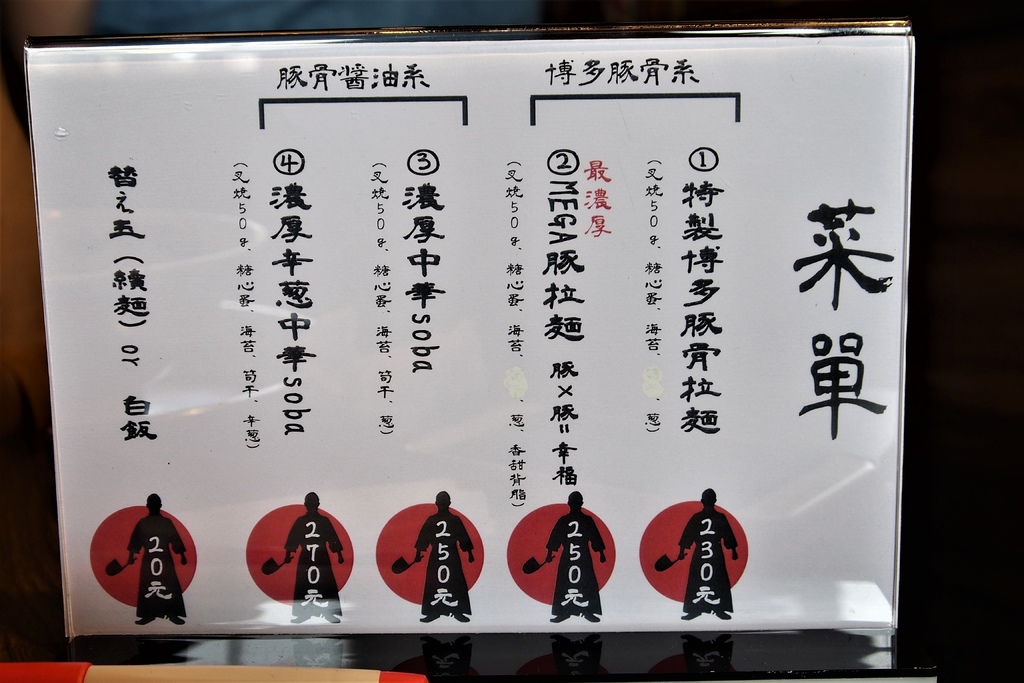 菜單
博多豚骨系
①特製博多豚骨拉麵
(叉焼50g、糖心蛋、海苔、蔥)
230元
最濃厚
②MEGA豚拉麵 豚×豚=幸福
(叉焼50g、糖心蛋、海苔、蔥、香甜背脂)
250元
豚骨醬油系
③濃厚中華soba
(叉焼50g、糖心蛋、海苔、筍干、蔥)
250元
④濃厚辛葱中華soba
(叉焼50g、糖心蛋、海苔、筍干、辛蔥)
270元
替え玉(續麵)or 白飯
20元